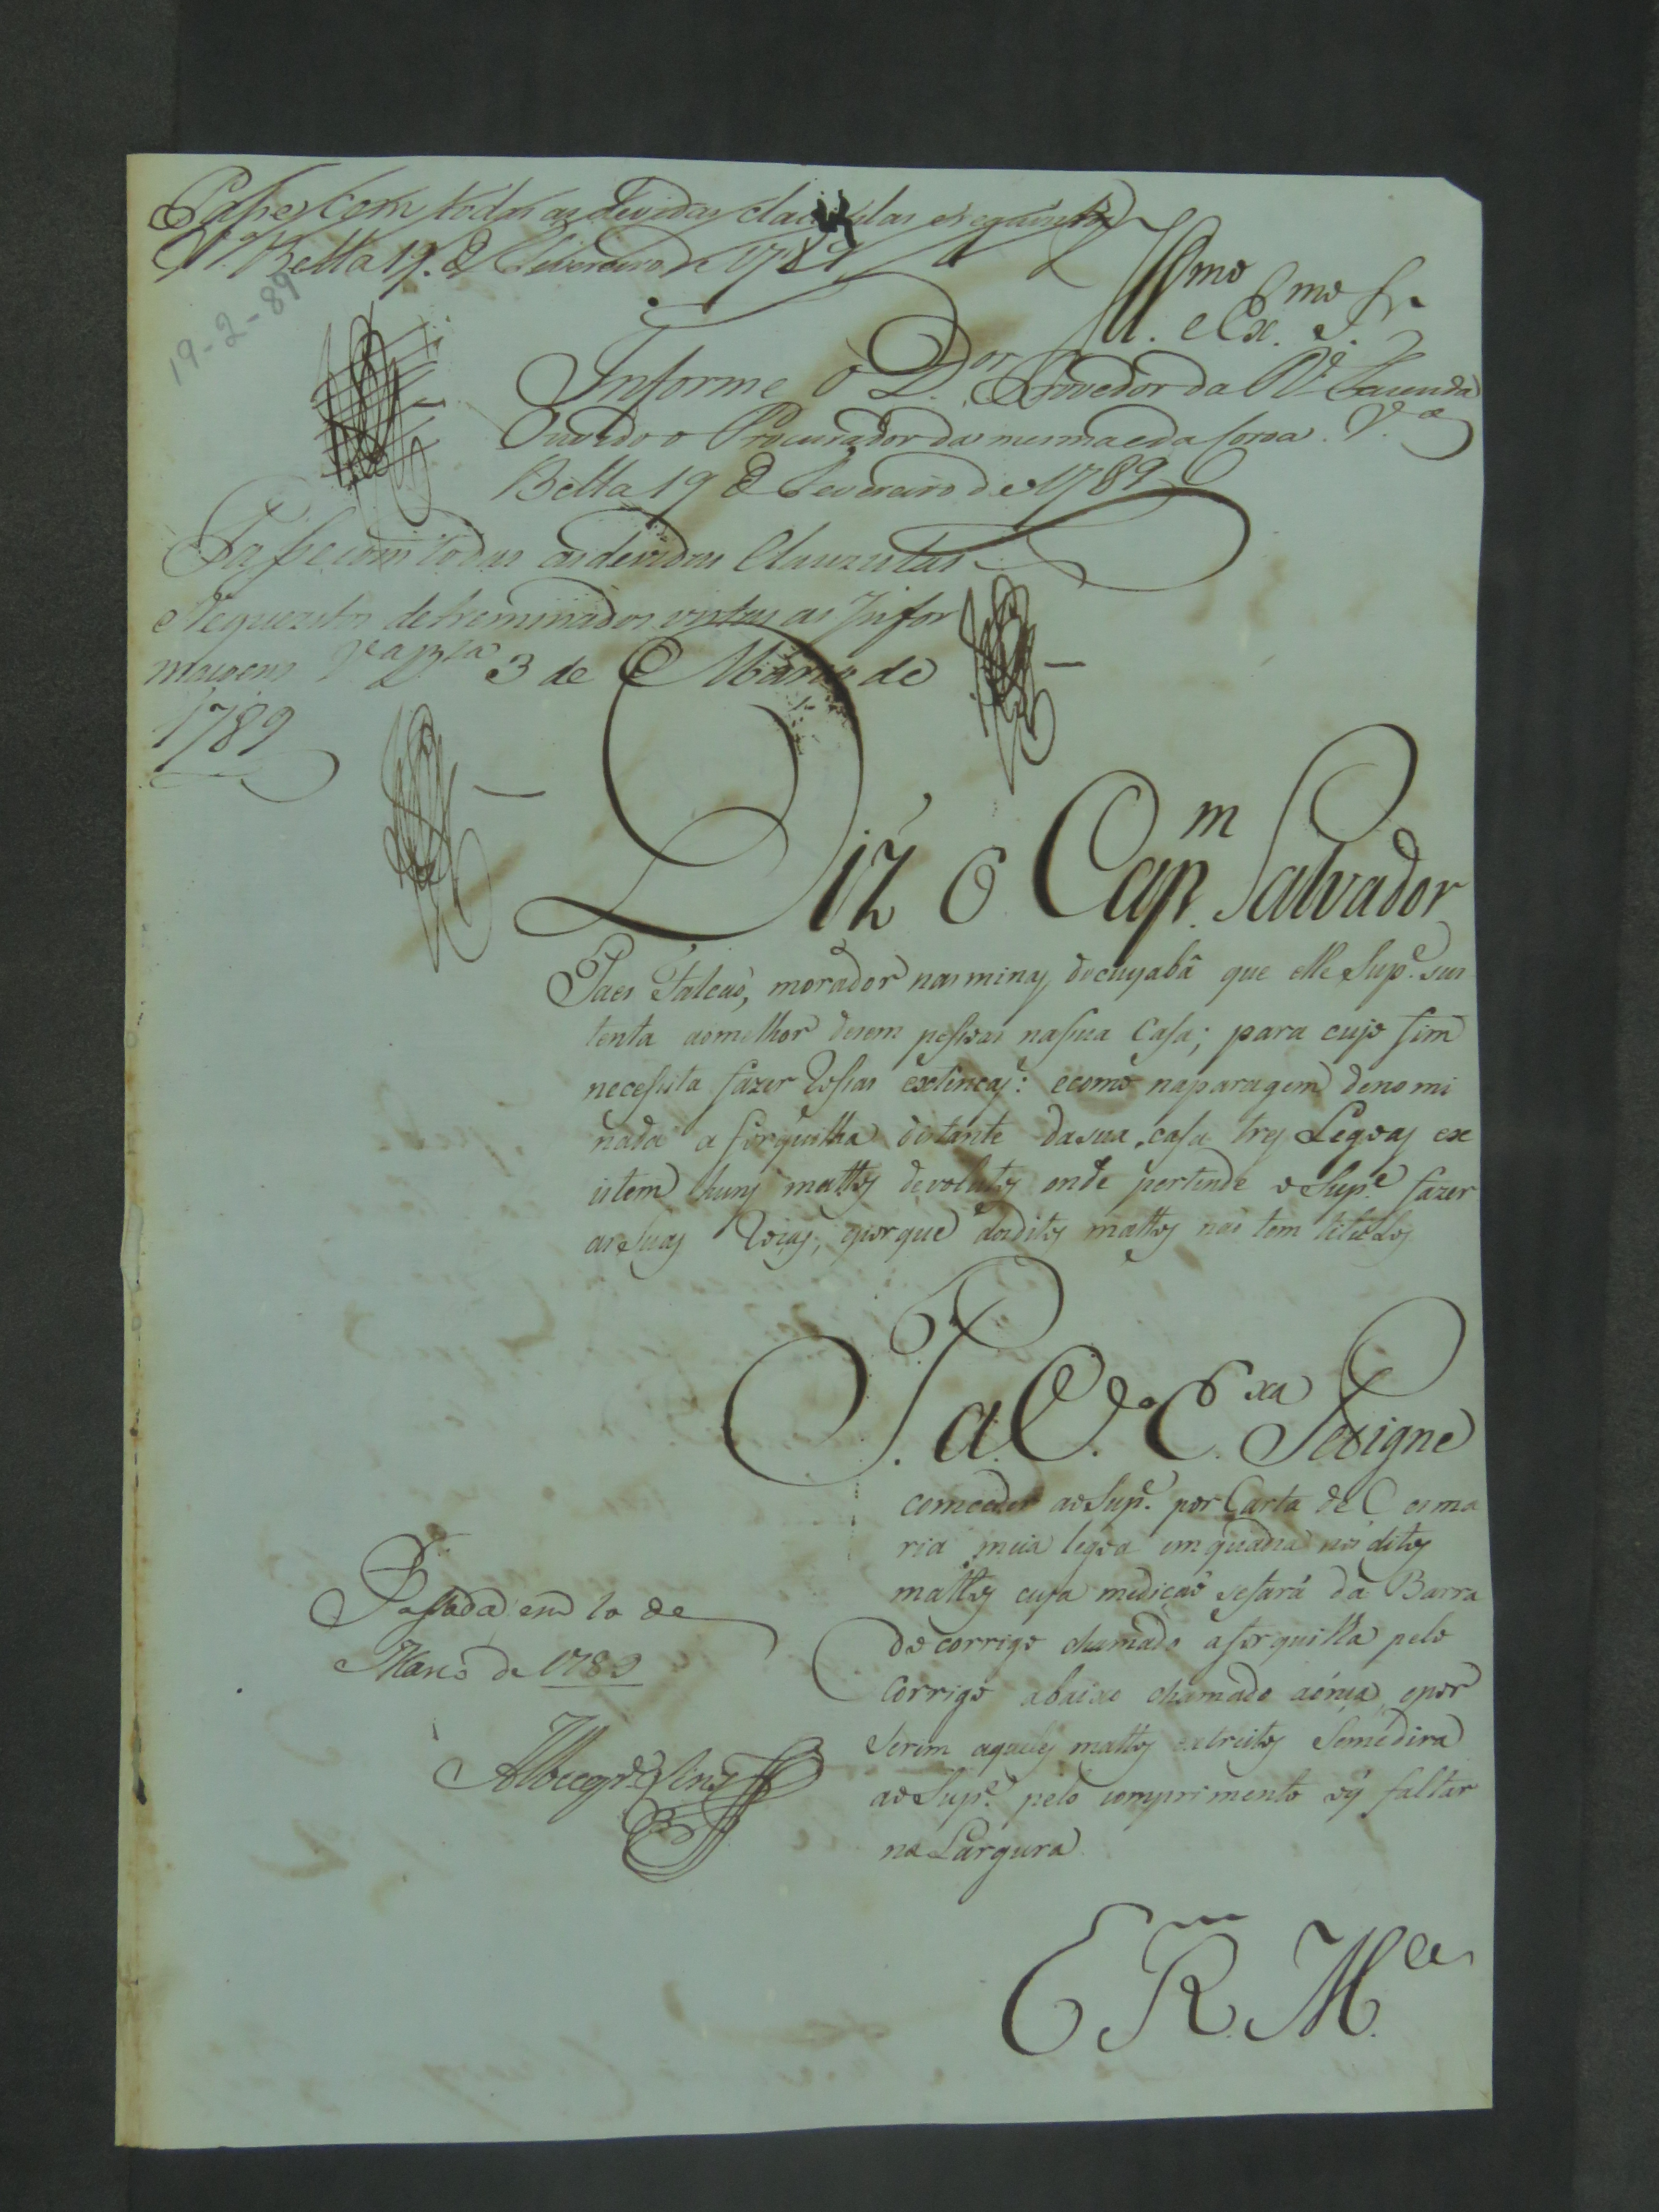 Passe com todas as devidas clauzulas e requizitos
V.ª Bella 19. de Fevereiro de 1789
19-2-89
Ill.mo e Ex.mo Sr.
Informe o D.or Provedor da R.l Fazenda
Ouvido o Procurador da mesma e da Coroa. V.ª
Bella 19 de Fevereiro de 1789
Passe com todas as devidas Clauzulas
e Requezitos detreminados vistas as Infor
maçoens V.ª B.la 3 de Março de
1789
Diz o Cap.m Salvador
Paes Falcaõ, morador nas minas do cuyabâ que elle Sup.e sus
tenta aomelhor decem pessoas nasua Casa; para cujo fim
necessita fazer Rossas extenças: ecomo naparagem denomi
nada a forquilha distante dasua casa tres Legoas ex
istem huns mattos devolutos onde pertende o Sup.e fazer
as suas Roças, porque dosditos mattos naõ tem titulos
P. a V. Ex.xa Se digne
comceder ao Sup.e por Carta de Cesma
ria meia legoa em quadra nos ditos
mattos cuja mediçaõ sefará da Barra
do corrigo chamado aforquilha pelo
Corrigo abaixo chamado epor
serem aqueles mattos extreitos Semedirá
ao Sup.e pelo comprimento oq faltar
na Largura
Passada em 10 de
Março de 1789
E R. M.ce